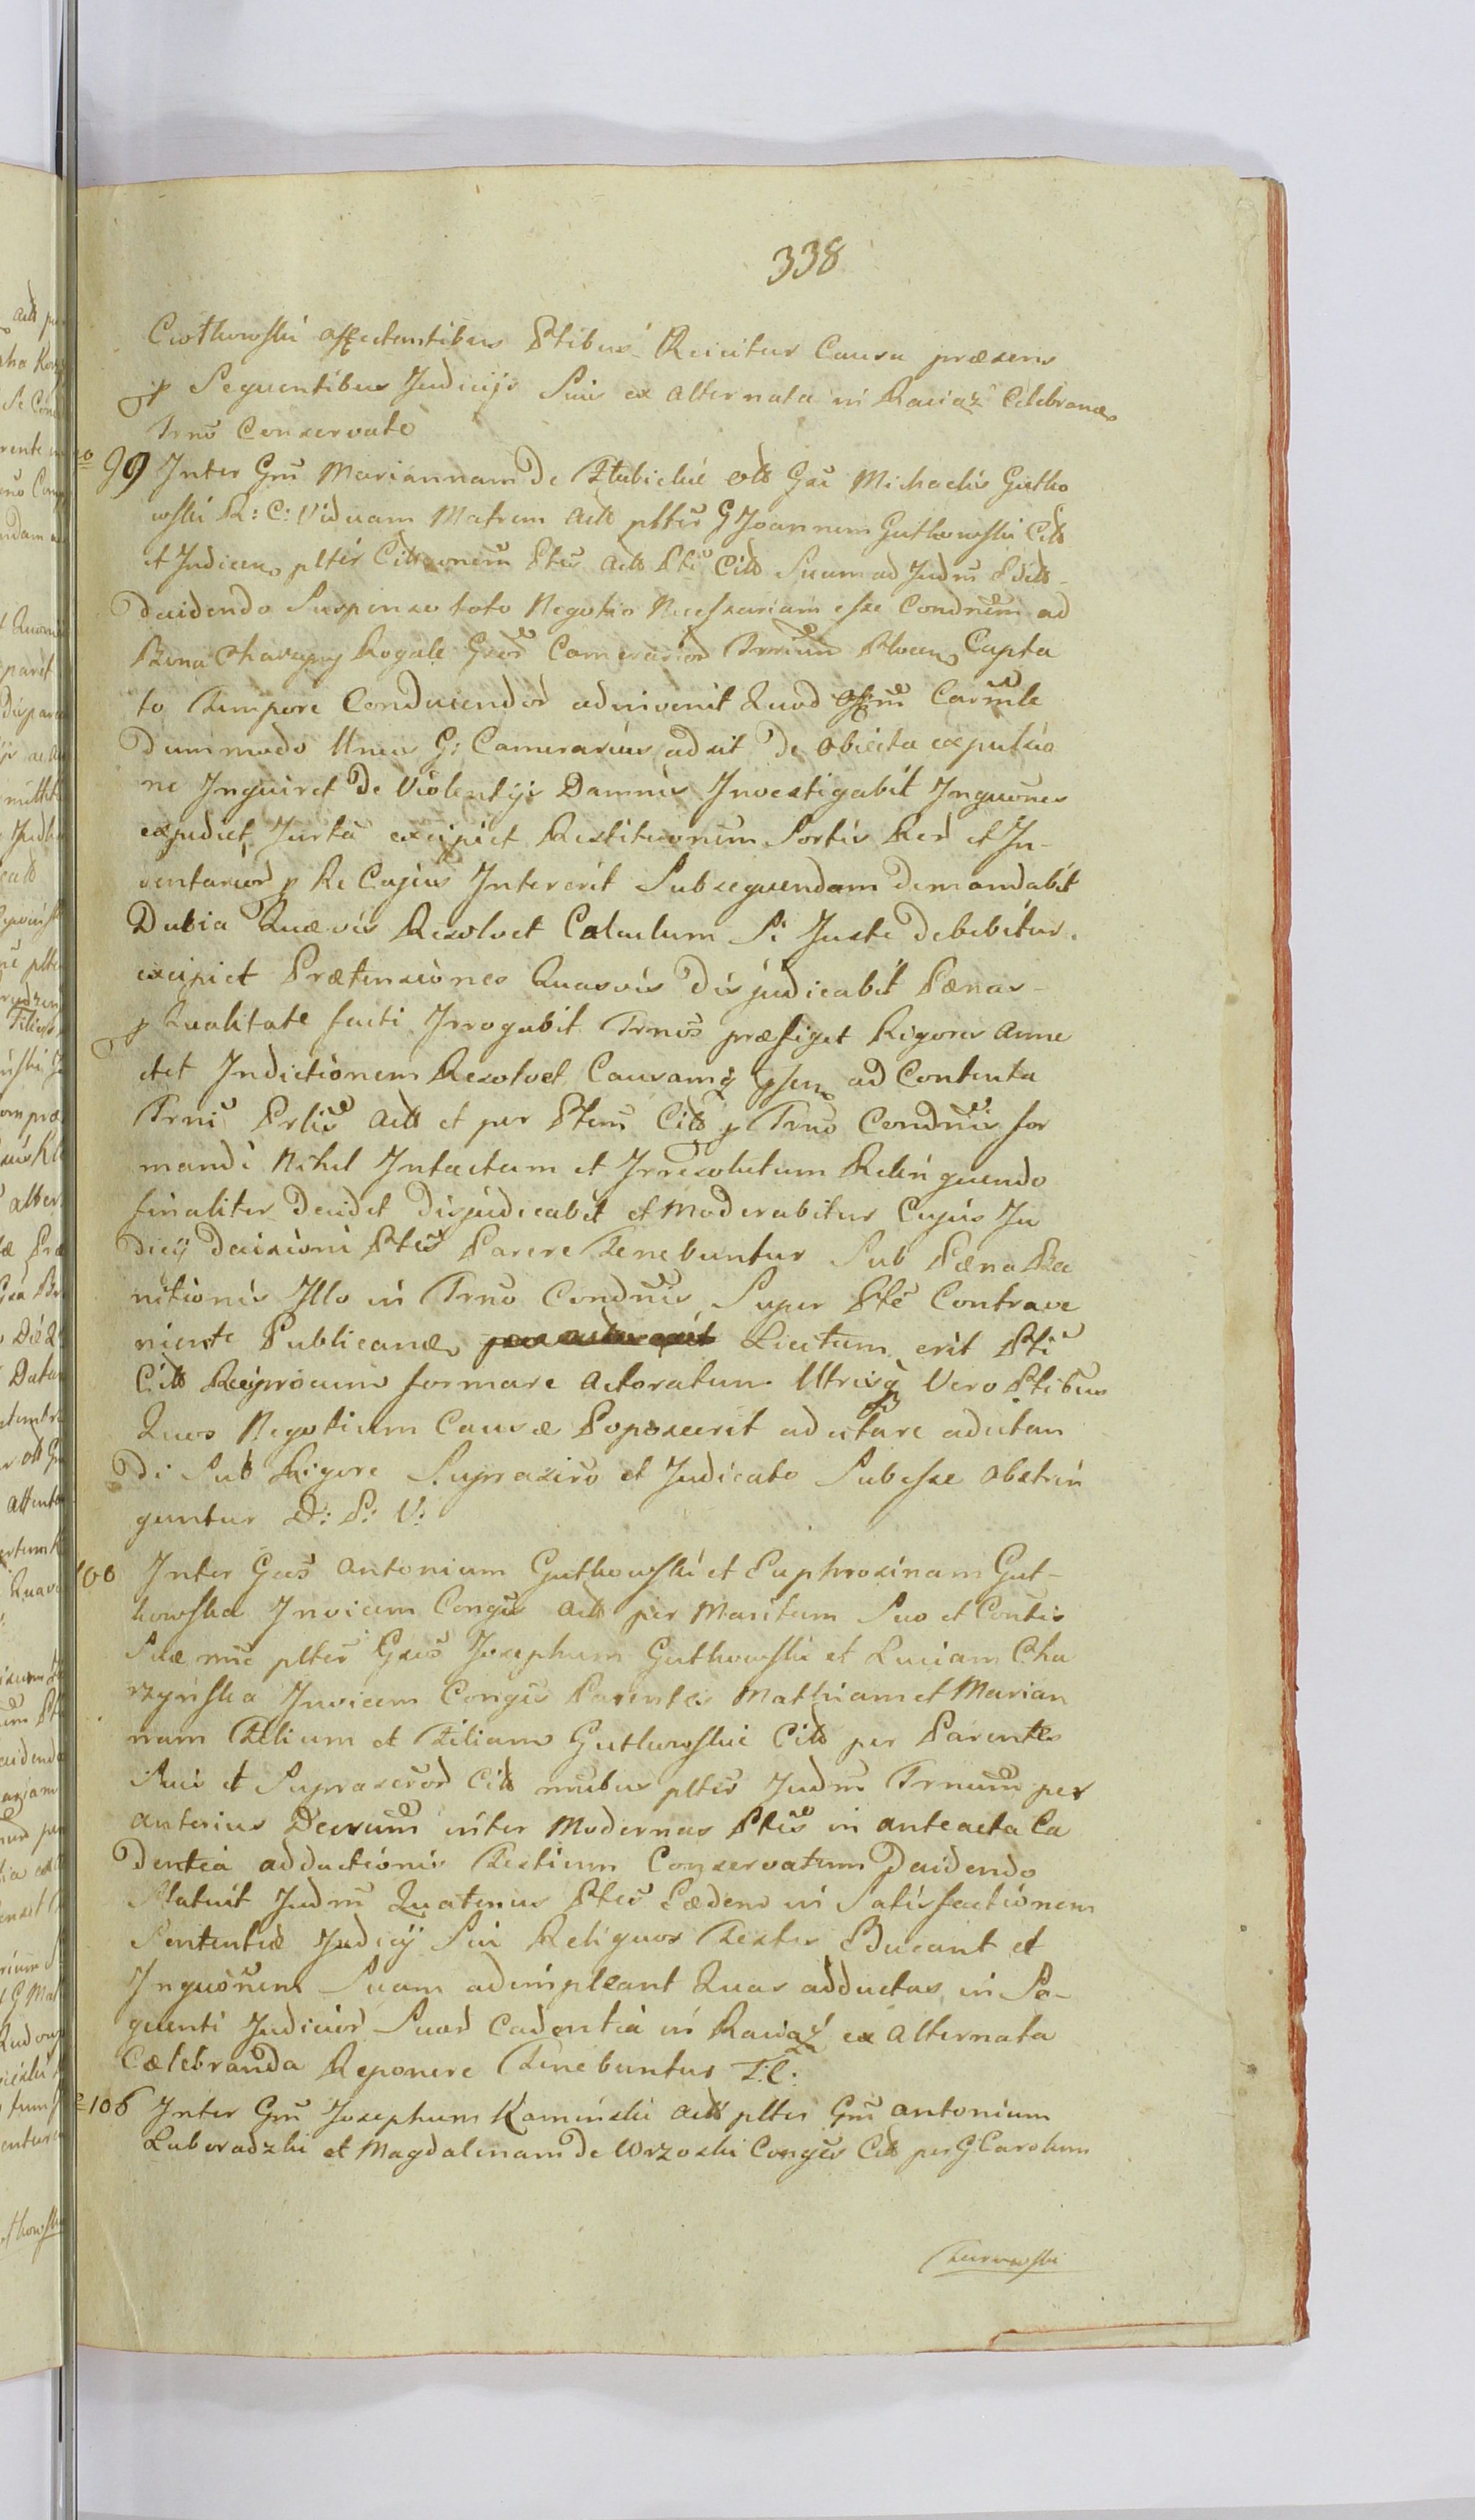 338
Ciothowski affectantibus Ptibus Reiicitur Causa præsens
p Sequentibus Judicijs Suis ex alternata in Raciąz Celebran
Trno Conservato
99 Inter Gm Mariannam De Stubickie olt Gsi Michaelis Gutko
wski R: C: Viduam Matrem Act pltes G Joannem Gutkowski Citt
et Judicem pltes Cittonem Ptes Act Pti Citt Suam ad Judm
Decidendo Suspenso toto Negotio Necessariam esse Condnem ad
Bona Regale Gsor Camerarior Trrium Plocen Capta
to Tempore Conducendor adinvenit Quod Offm Carmle
Dummodo Unus G: Camerarius adsit De Obiecta expulsio
ne Inquiret De Violentijs Damnis Investigabit Inquones
expediet, Jurta excipiet Restituonem Sortis Rer et In-
ventarior p Re Cujus Intererit Subsequendam Demandabit
Dubia Quævis Resolvet Calculum Si Juste Debebitur
excipiet Prætensiones Quasvis Disjudicabit Pænas-
p Qualitate facti Irrogabit Trnos præfiget Rigores anne
ctet Indictionem Resolvet Causamq ipsem ad Contenta
Trni Prlis Act et per Ptem Citt p Trno Condnis for
mandi Nihil Intactum et Irresolutum Relin quendo
finaliter Decidet Disjudicabit et Moderabitur Cujus Ju
dicij Decisioni Ptes Parere Tenebuntur Sub Pæna Ban
nitionis Illo in Trno Condnis Super Pte Contrave
niente Publicanda Licitum erit Pti
Citt Reciprocum formare Actoratum Utrisq Vero Ptibus
Quos Negotium Causæ Poposcerit adcitare adcitan
di Sub Rigore Suprascro et Judicato Subesse Obstrin
guntur D: P: V:
100 Inter Gos Antonium Gutkowski et Euphrosinam Gut-
kowska Invicem Conges Act per Maritum Suo et Contis
Suæ nne pltes Gsos Josephum Gutkowski et Luciam Cha
rzyńska Invicem Conges Parentes Mathiam et Marian
nam Filium et Filiam Gutkowskie Citt per Parentes
Suo et Suprascror Citt nnibus pltes Judm Trnum per
anterius Decrum inter Modernas Ptes in anteacta Ca
dentia adductionis Testium Conservatum Decidendo
Statuit Judm Quatenus Ptes Eædem in Satisfactionem
Sententiæ Judicij Sui Reliquos Testes Ducant et
Inquonem Suam adimpleant Quas adductas in Se-
quenti Judicior Suor Cadentia in Raciąz ex Alternata
Cælebranda Reponere Tenebuntur T.C:
106 Inter Gm Josephum Kamiński Act pltes Gm Antonium
Luberadzki et Magdalenam De Wrzoski Conges Citt per G Carolum
Turowski